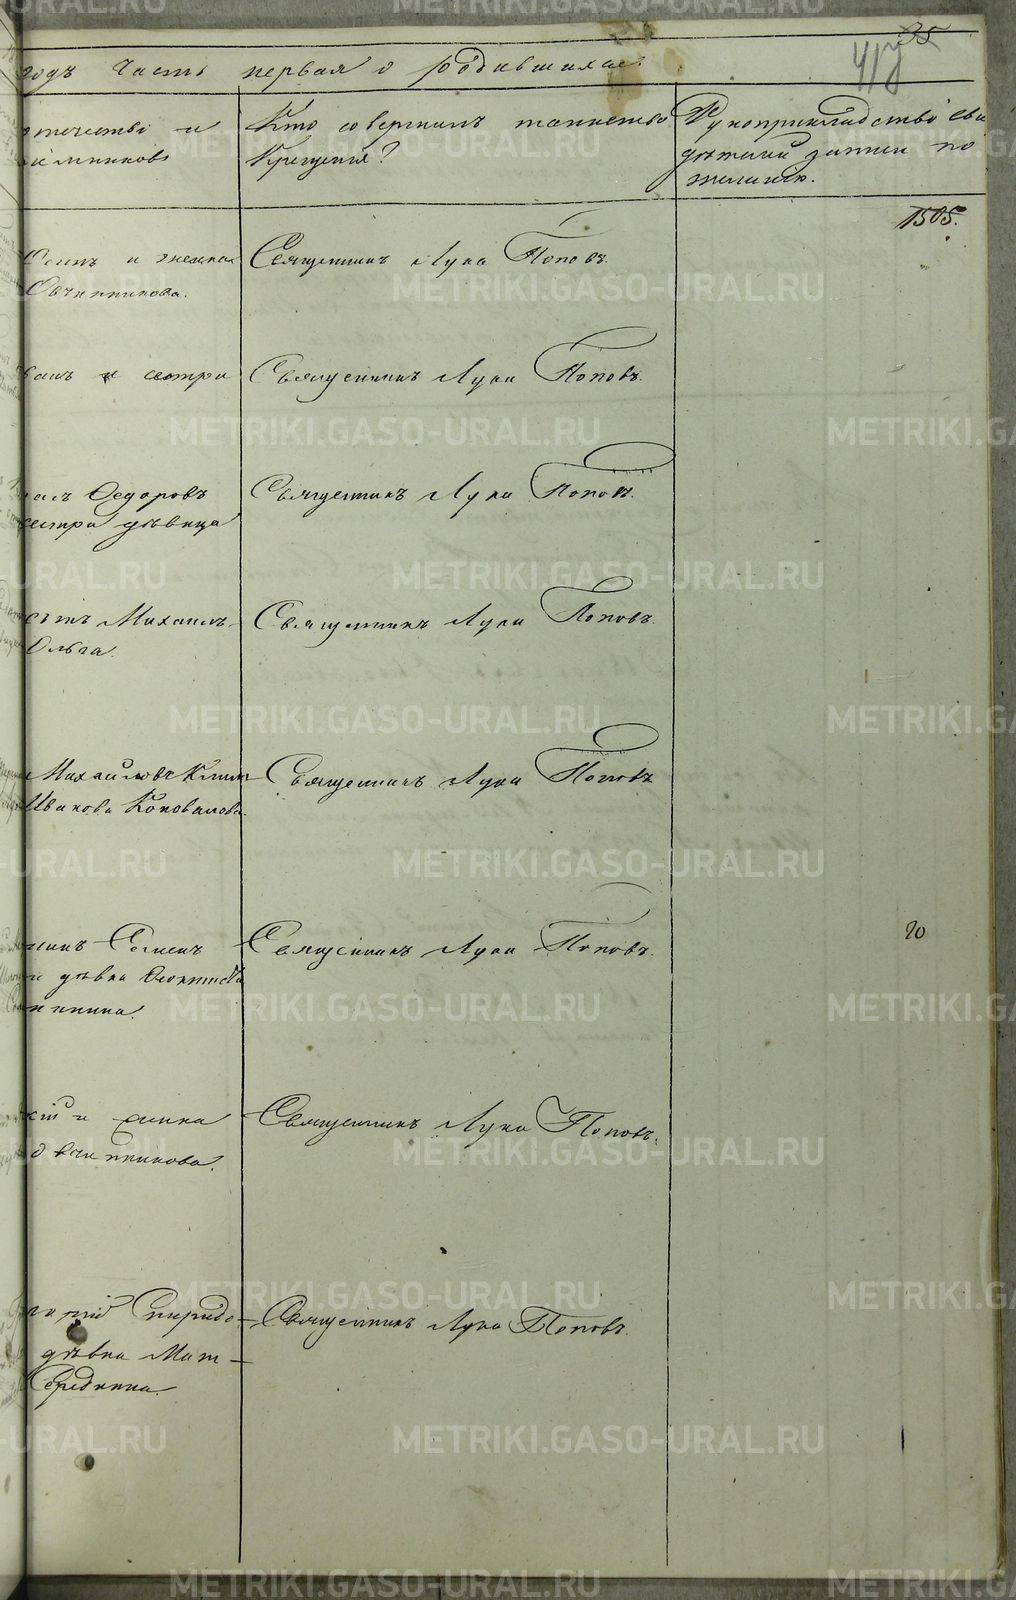 35
417
годъ Часть первая о родившихся.
отечество и
Кто совершилъ таинство
Крещенія?
Рукоприкладство сви
дѣтелей записи по
желанію.
1505.
и
Овчинникова.
Священникъ Лука Поповъ.
и сестра
Священникъ Лука Поповъ.
Федоровъ
сестра дѣвица
Священникъ Лука Поповъ.
Михаилъ
Ольга.
Священникъ Лука Поповъ.
Михайловъ
Иванова Коновалова.
Священникъ Лука Поповъ
Семенъ
и дѣвка
Священникъ Лука Поповъ.
20
и
Овчинникова.
Священникъ Лука Поповъ.
Спиридо
дѣвка Мат
Середкина.
Священникъ Лука Поповъ.
METRIKI.GASO-URAL.RU